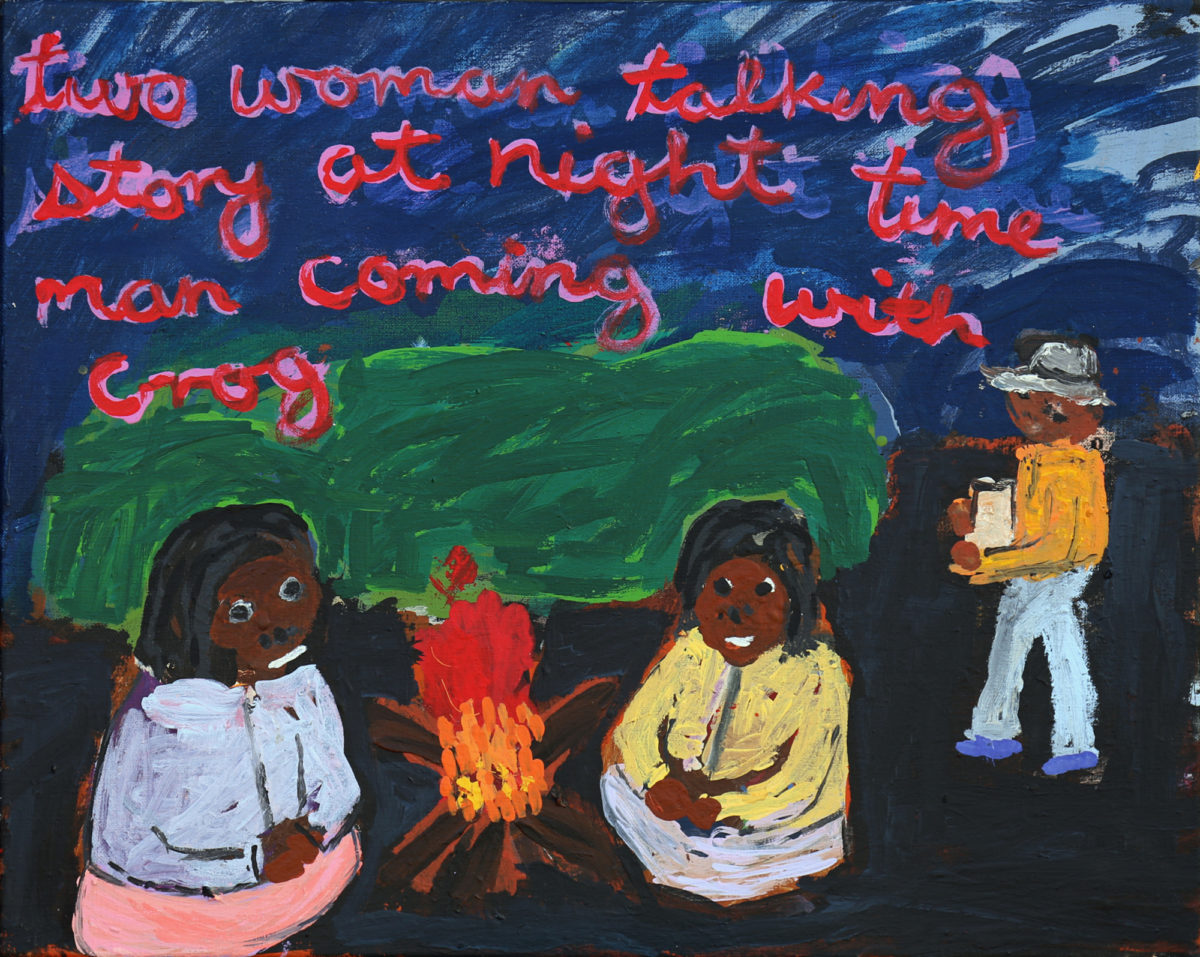 two woman talking
story at night time
man coming with
Grog